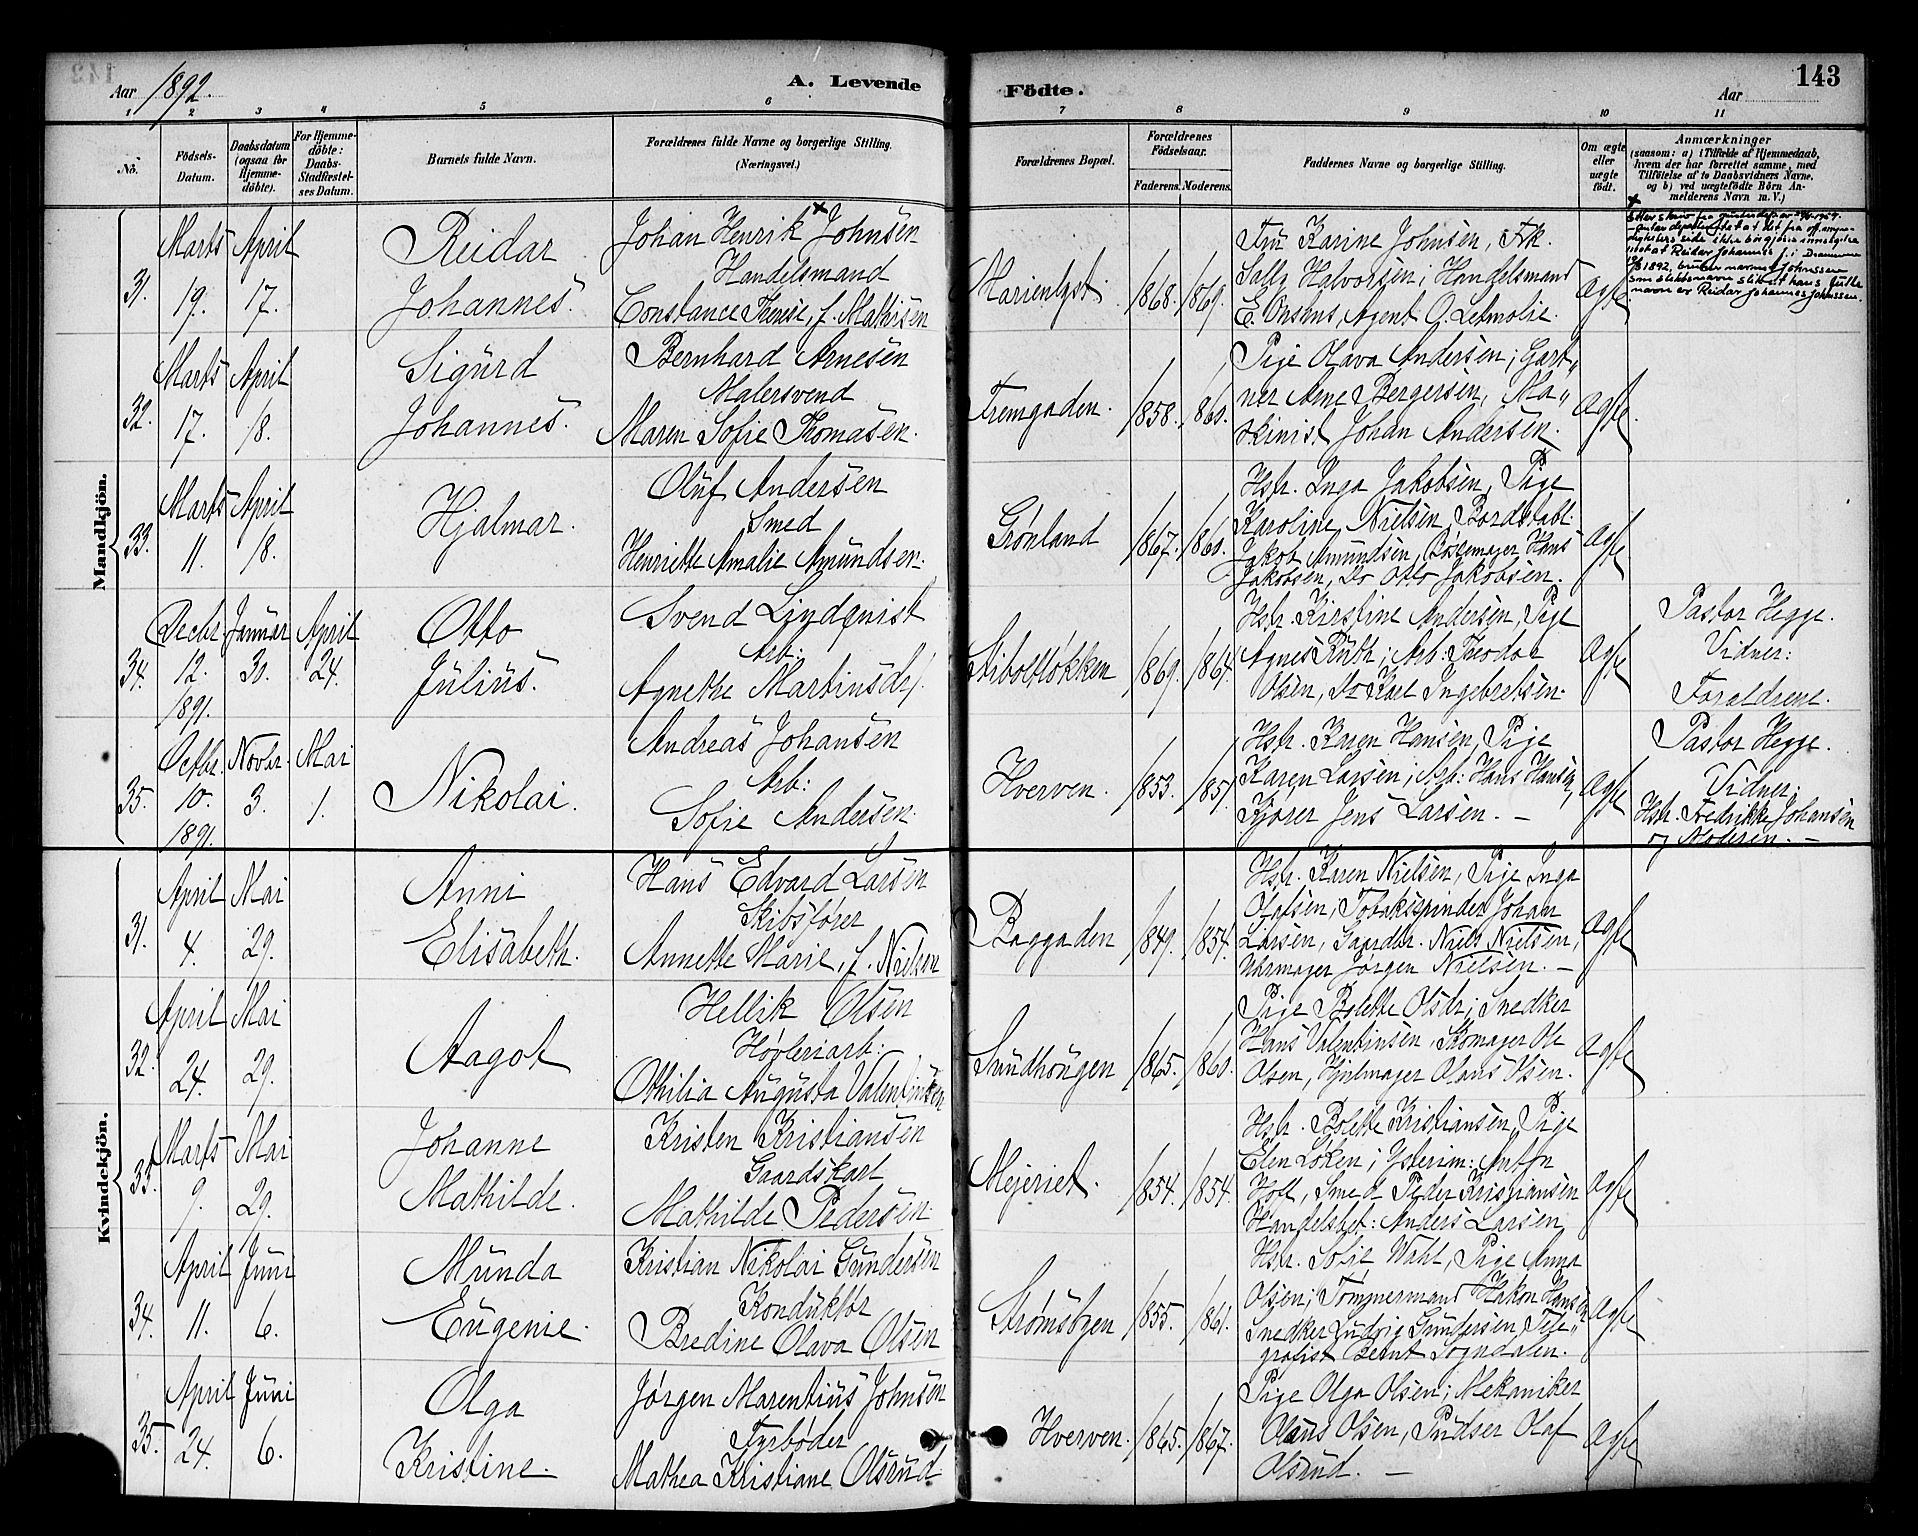 Aar 1892.
A. Levende
Fødte.
Aar
143
1 2 3 4 5 6 7 8 9 10 11
No.
Fødsels-
Datum.
Daabsdatum
(ogsaa for
Hjemme-
døbte).
For Hjemme-
døbte:
Daabs-
Stadfæstel-
ses Datum.
Barnets fulde Navn.
Forældrenes fulde Navne og borgerlige Stilling.
(Næringsvei.)
Forældrenes Bopæl.
Forældrenes
Fødselsaar.
Faderens. Moderens.
Faddernes Navne og borgerlige Stilling.
Om ægte
eller
uægte
født.
Anmærkninger
(saasom: a) i Tilfælde af Hjemmedaab,
hvem der har forrettet samme, med
Tilføielse af to Daabsvidners Navne,
og b) ved uægtefødte Børn An-
melderens Navn m. V.)
Mandkjøn.
31.
Marts
19.
April
17.
Reidar
Johannes.
Johan Henrik x Johnsen
Handelsmand
Constance Therese, f. Mathisen
Marienlyst.
1868. 1869.
Fru Karine Johnsen, Frk.
Sally Halvorsen; Handelsmand
Agent O.
Ægte
1892,
navn er Reidar Johannes Johnssen.
32.
Marts
17.
April
18.
Sigurd
Johannes.
Bernhard Arnesen
Malersvend
Maren Sofie Thomasen.
Tremgaden.
1858. 1860.
Pige Olava Andersen; Gart„
ner Arne Bergersen, Ma„
skinist Johan Andersen.
Ægte
33.
Marts
11.
April
18.
Hjalmar.
Oluf Andersen
Smed
Henriette Amalie Amundsen.
Grønland
1867. 1860.
Hstr. Inga Jakobsen, Pige
Karoline Nielsen,
Jakob Amundsen, Bøssemager Hans
Jakobsen, Do Otto Jakobsen.
Ægte
34.
Decbr.
12.
1891.
Januar
30.
April
24.
Otto
Julius.
Svend Lindqvist
Arb:
Agnethe Martinsdr.
Stiboltløkken
1869. 1864.
Hstr. Kirstine Andersen, Pige
Agnes Ruth; Arb: Theodor
Olsen, Do Karl Ingebretsen.
Ægte
Pastor Hegge.
Vidner:
Forældrene.
35.
Octbr.
10.
1891.
Novbr.
3.
Mai
1.
Nikolai.
Andreas Johansen
Arb:
Sofie Andersen.
Hverven.
1853. 1851.
Hstr. Karen Hansen, Pige
Karen Larsen; Arb: Hans Hansen,
Kjører Jens Larsen. —
Ægte
Pastor Hegge.
Vidner:
Hstr. Fredrikke Johansen
og Moderen. —
Kvindekjøn.
31.
April
4.
Mai
29.
Anni
Elisabeth.
Hans Edvard Larsen
Skibsfører
Annette Marie, f. Nielsen
Baggaden
1849. 1854.
Hstr. Karen Nielsen, Pige Inga
Olafsen; Tobaksspinder Johan
Larsen, Gaardbr. Niels Nielsen,
Uhrmager Jørgen Nielsen. —
Ægte
32.
April
24.
Mai
29.
Aagot
Hellik Olsen
Høvleriarb:
Othilia Augusta Valentinsen
Sundhaugen
1865. 1860.
Pige Bolette Olsdr; Snedker
Hans Valentinsen, Skomager Ole
Olsen, Hjulmager Olaus Olsen.
Ægte
33.
Marts
9.
Mai
29.
Johanne
Mathilde.
Kristen Kristiansen
Gaardskarl
Mathilde Pedersen.
Mejeriet.
1854. 1854.
Hstr. Bolette Kristiansen, Pige
Elen Løken; Ysterim: Anton
Hoff, Smed Peder Kristiansen
Handelsbet: Anders Larsen,
Ægte
34.
April
11.
Juni
6.
Munda
Eugenie.
Kristian Nikolai Gundersen
Konduktør
Bredine Olava Olsen
Strømsbyen
1855. 1861.
Hstr. Sofie Wahl, Pige Anna
Olsen; Tømmermand Hakon Hansen
Snedker Ludvig Gundersen, Tele„
grafist Bernt Sogndalen.
Ægte
35.
April
24.
Juni
6.
Olga
Kristine.
Jørgen Marentius Johnsen
Fyrbøder
Mathea Kristiane Olsrud
Hverven.
1865. 1867.
Pige Olga Olsen; Mekaniker
Olaus Olsen, Pudser Olaf
Olsrud. —
Ægte